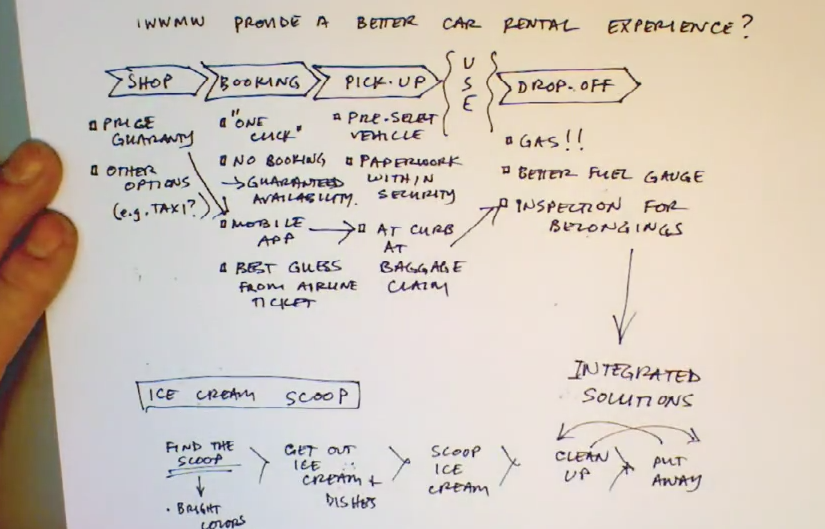 IWWMW PROVIDE A BETTER CAR RENTAL EXPERIENCE?
SHOP
BOOKING
PICK-UP
USE
DROP-OFF
PRICE
GUARANTY
OTHER
OPTIONS
(e.g. TAXI?)
"ONE
CLICK"
NO BOOKING
→ GUARANTEED
AVAILABILITY.
MOBILE
APP
BEST GUESS
FROM AIRLINE
TICKET
PRE-SELECT
VEHICLE
PAPERWORK
WITHIN
SECURITY
AT CURB
AT
BAGGAGE
CLAIM
GAS!!
BETTER FUEL GAUGE
INSPECTION FOR
BELONGINGS
INTEGRATED
SOLUTIONS
ICE CREAM SCOOP
FIND THE
SCOOP
• BRIGHT
COLORS
GET OUT
ICE
CREAM +
DISHES
SCOOP
ICE
CREAM
CLEAN
UP
PUT
AWAY